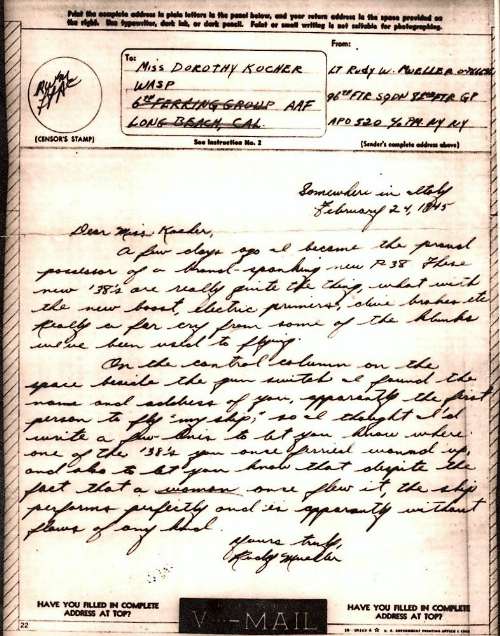 Print the complete address in plain letters in the panel below, and your return address in the space provided on
the right. Use typewriter, dark ink, or dark pencil. Faint or small writing is not suitable for photographing.
To:
From:
MISS DOROTHY KOCHER
WASP
6TH FERRING GROUP AAF
LONG BEACH, CAL.
LT RUDY W. MUELLER
96TH FTR SQDN 82ND FTR GP
APO 520 % PM. NY NY
(CENSOR'S STAMP)
See Instruction No. 2
(Sender's complete address above)
Somewhere in Italy
February 24, 1945
Dear Miss Kocher,
A few days ago I became the proud
possessor of a brand-spanking new P-38. These
new '38's are really quite the thing, what with
the new boost, electric primers, dive brakes etc
Really a far cry from some of the klunks
we've been used to flying.
On the control column on the
space beside the gun switch I found the
name and address of you, apparently the first
person to fly "my ship," so I thought I'd
write a few lines to let you know where
one of the '38's you once ferried wound up,
and also to let you know that despite the
fact that a woman once flew it, the ship
performs perfectly and is apparently without
flaws of any kind.
Yours truly,
Rudy Mueller
HAVE YOU FILLED IN COMPLETE
ADDRESS AT TOP?
V -MAIL
HAVE YOU FILLED IN COMPLETE
ADDRESS AT TOP?
22
U. S. GOVERNMENT PRINTING OFFICE